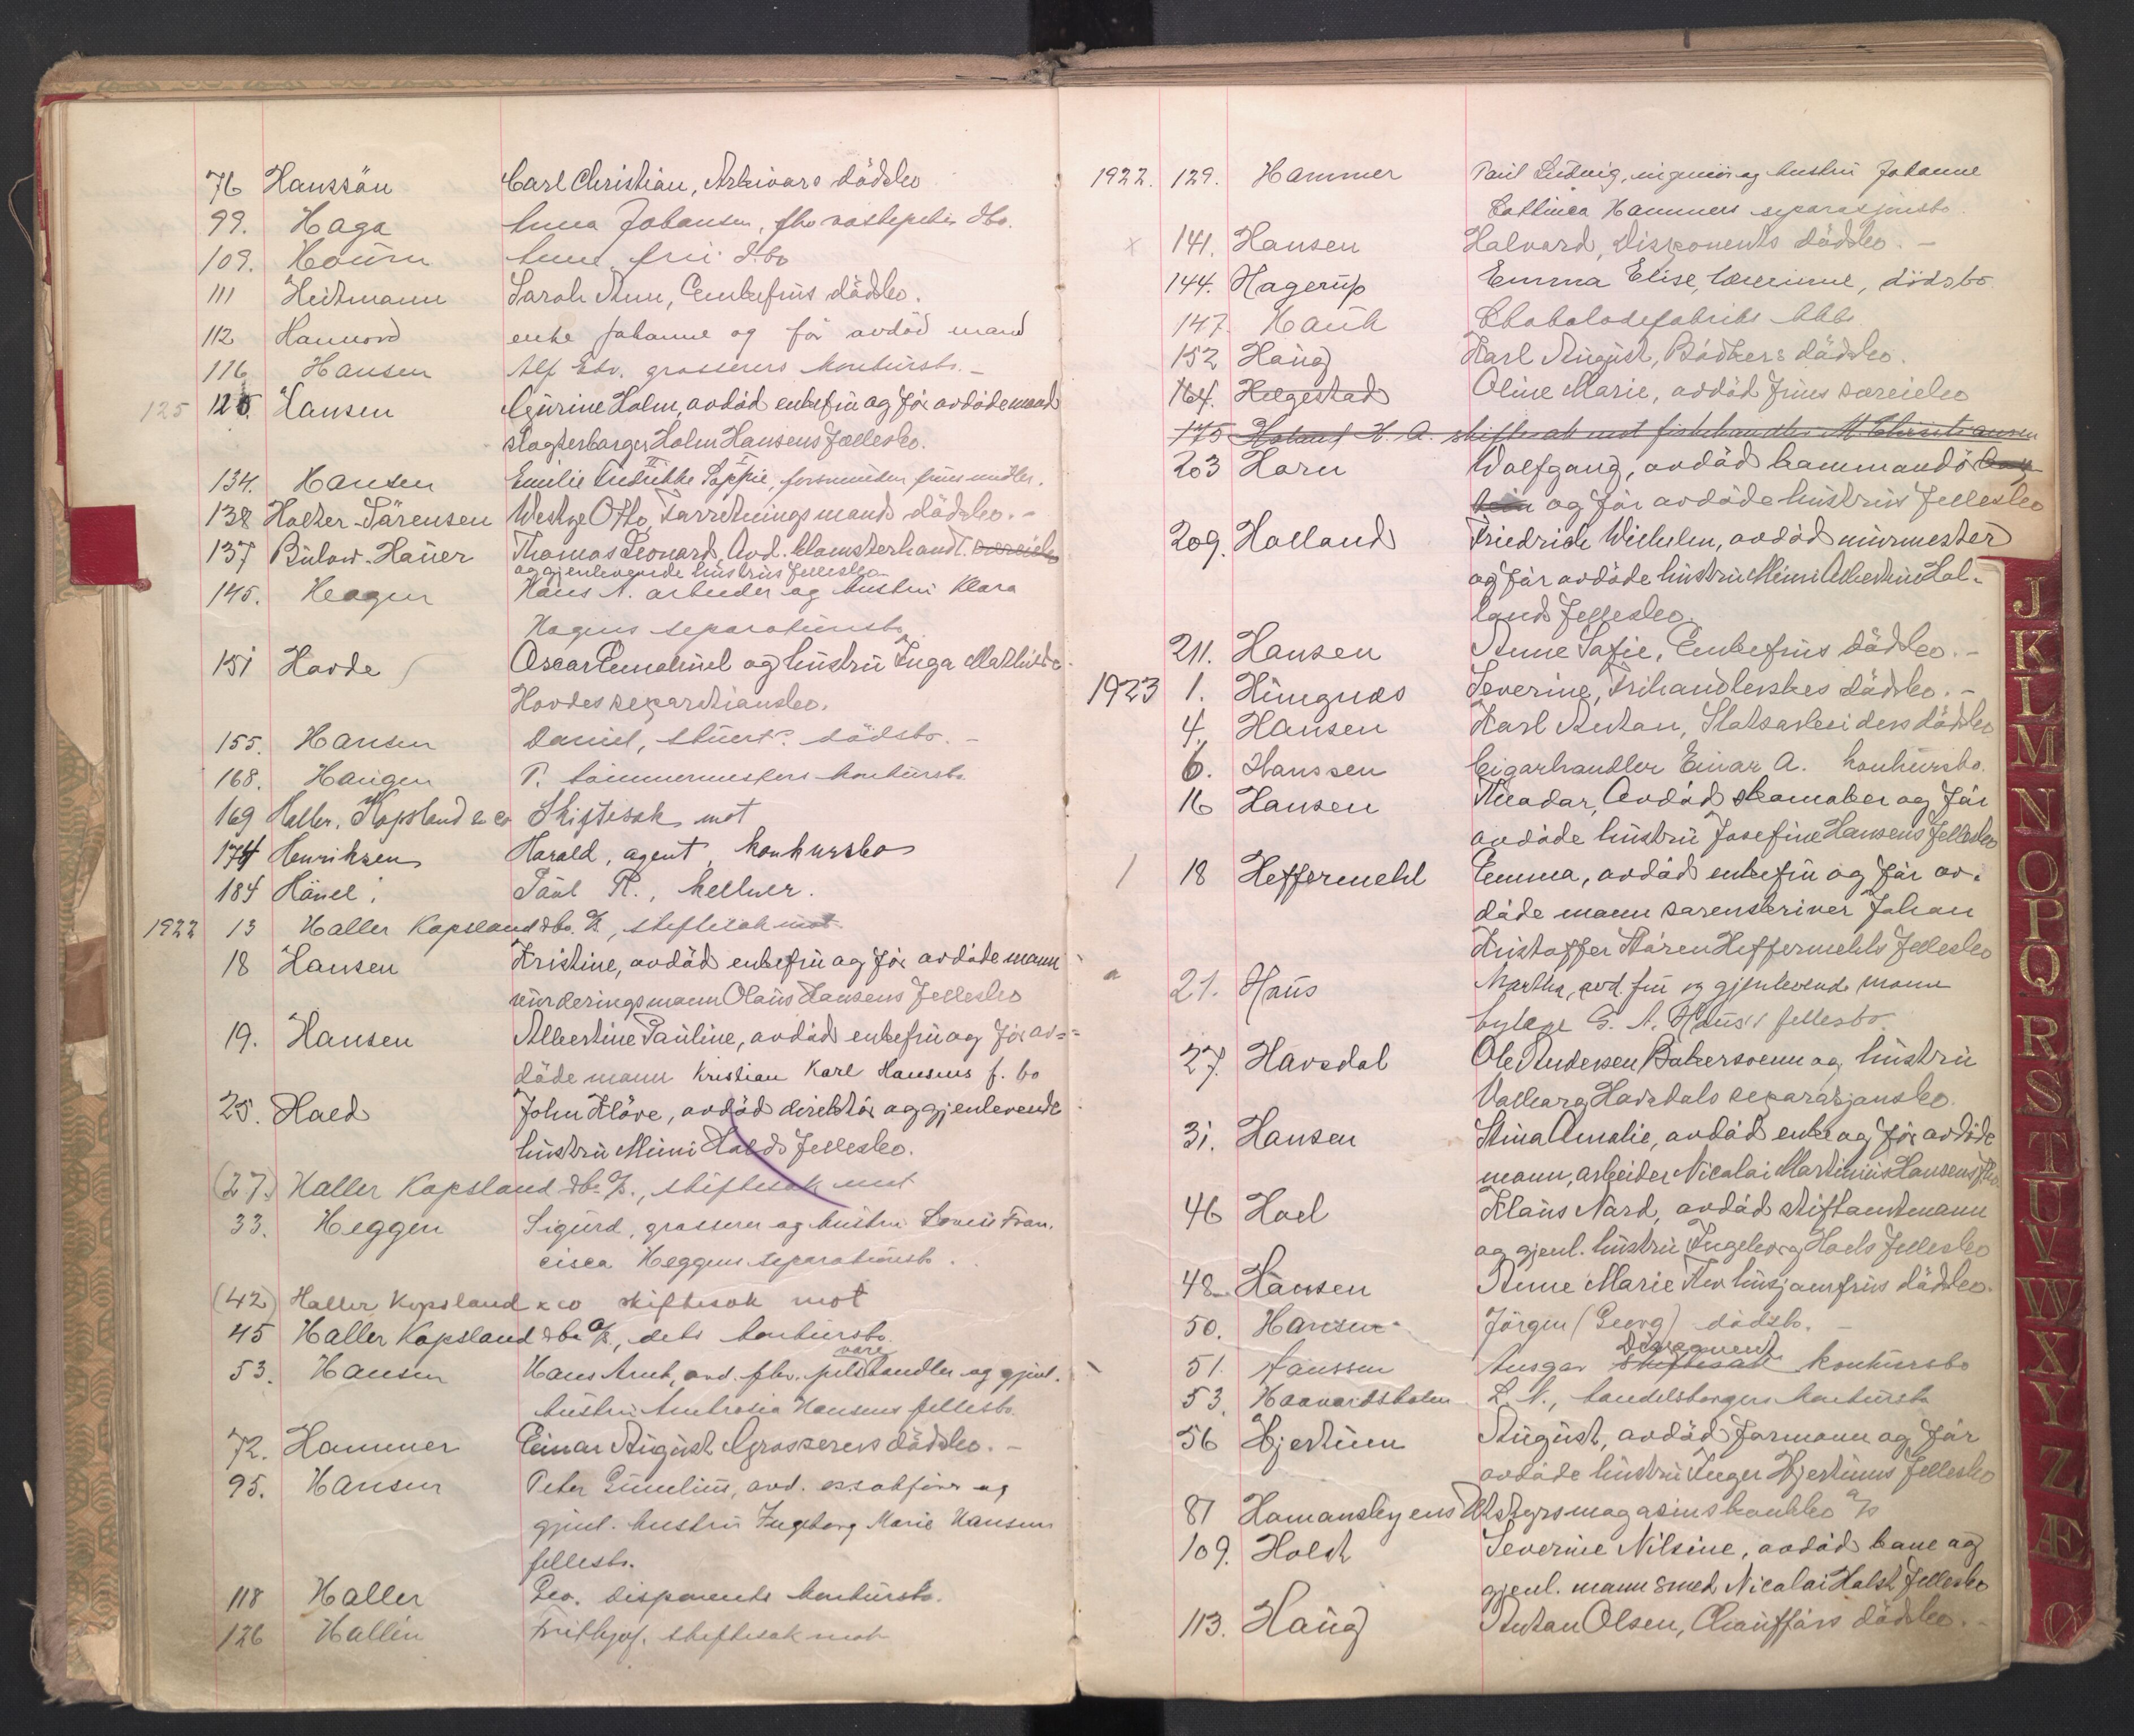 76 Hanssön Carl Christian, Arkivars dödsbo
99. Haga Anna Johansen, dbo.
109. Hourn Anne frü dbo
111 Heitmann Sarah Ann, Enkefrüs dödsbo.
112 Hannord enke Johanne og før avdöd mand
116 Hansen Alf Edv. grosserers konkürsbo. –
125 125. Hansen Gurine Holm, avdöd enkefrü og för avdöde mand
slagterborger Holm Hansens Fællesbo.
134. Hansen Emilie Fredrikke Sophie,
138 Holter-Sörensen Westye Otto, Forretningsmands dödsbo. –
137 Bülow-Hauer Thomas Leonard, Avd. blomsterhandl.
og gjenlevende hüstrüs Fellesbo
145. Heagen Hans A. arbeider og hüstrü Klara
Hagens separationsbo
151 Hovde Oscar Emanuel og hüstrü Inga Mathilde
Hovdes separationsbo.
155. Hansen Daniel, stüert. dödsbo. –
168. Haugen P. tömmermesters konkürsbo.
169 Haller, Kopsland & co Skiftesak mot
174 Henriksen Harold, agent, konkursbo
184 Hänel. Paul R., kellner.
1922 13 Haller Kopsland & Co. A/S, skiftesak mot
18 Hansen Kristine, avdöd enkefrü og för avdöde mann
vürderingsmann Olaus Hansens Fellesbo
19. Hansen Albertine Pauline, avdöd enkefrü og för av-
döde mann Kristian Karl Hansens f. bo
25. Hald John Klöve, avdöd direktör og gjenlevende
hüstrü Mimi Halds Fellesbo.
(27.) Haller Kopsland & Co A/S., skiftesak mot
33. Heggen Sigurd, grosserer og hüstrü Louise Fran.
cisca Heggens separationsbo.
(42) Haller, Kopsland & co skiftesak mot
45 Haller Kopsland & Co A/S, dets konkürsbo.
53. Hansen Hans Arnt, avd. fhv. pelsvarehandler og gjenl.
hüstrü Ambrosia Hansens fellesbo.
72. Hammer Einar August Grosserers dödsbo. –
95. Hansen Peter avd. og
gjenl. hustrü Ingeborg Marie Hansens
fellesbo.
118 Haller Geo. disponents konkürsbo.
126 Hallin Frithjof. skiftesak mot
1922. 129. Hammer Paul Ludvig, ingeniör og hustrü Johanne
Cathinca Hammers separasjonsbo.
x 141. Hansen Halvard, Disponents dödsbo. –
144. Hagerup Emma Elise, lærerinne, dödsbo
147. Hauk Chokoladefabrikk
152 Haug Karl August, Bödkers dödsbo.
164. Helgestad Oline Marie, avdöd früs særeiebo
175 H. A. skiftesak mot fiskehandler M. Christiansen
203 Horn Wolfgang, avdöd kommandö
og för avdöde hüstrüs Fellesbo
209. Holland Friedrich Wilhelm, avdöd mürmester
og för avdöde hüstrü Mimi Albertine Hol-
lands Fellesbo
211. Hansen Anne Sofie, Enkefrüs dödsbo. –
1923 1. Severine, Frihandlerskes dödsbo. –
4. Hansen Karl Anton, Slotsarbeiders dödsbo
6. Hanssen Cigarhandler Einar A. konkürsbo.
16 Hansen Theodor, Avdöd skomaker og för
avdöde hüstrü Josefine Hansens Fellesbo
18 Heffermehl Emma, avdöd enkefrü og för av.
döde mann sorenskriver Johan
Kristoffer Stören Heffermehls Fellesbo
21. Haus Martha, avd. frü og gjenlevende mann
G. A. Haus's fellesbo.
27. Havsdal Ole Andersen Bakersvenn og hüstrü
Valborg Havsdals separasjonsbo.
31. Hansen Stina Amalie, avdöd enke og för avdöde
mann, arbeider Nicolai Martinius Hansens
46 Hoel Klaus Nard, avdöd stiftamtmann
og gjenl. hüstrü Ingeborg Hoels Fellesbo
48. Hansen Anne Marie hüsjomfrüs dödsbo.
50. Hansen Jörgen (Georg) dödsbo. –
51. Hanssen Ansgar skiftesak konkürsbo
53. Haavardsholm L. N., handelsborgers konkürsbo
56 Hjertum August, avdöd formann og för
avdöde hüstrü Inger Hjertums Fellesbo
87 Homansbyens Utstyrsmagasins konkbo A/S
109. Holst Severine Nilsine, avdöd kone og
gjenl. mann smed Nicolai Holst Fellesbo
113. Haug Anton Olsen, Chaufförs dödsbo. –
J
K
L
M
N
O
P
Q
R
S
T
U
V
W
X
Y
Z
Æ
Ø